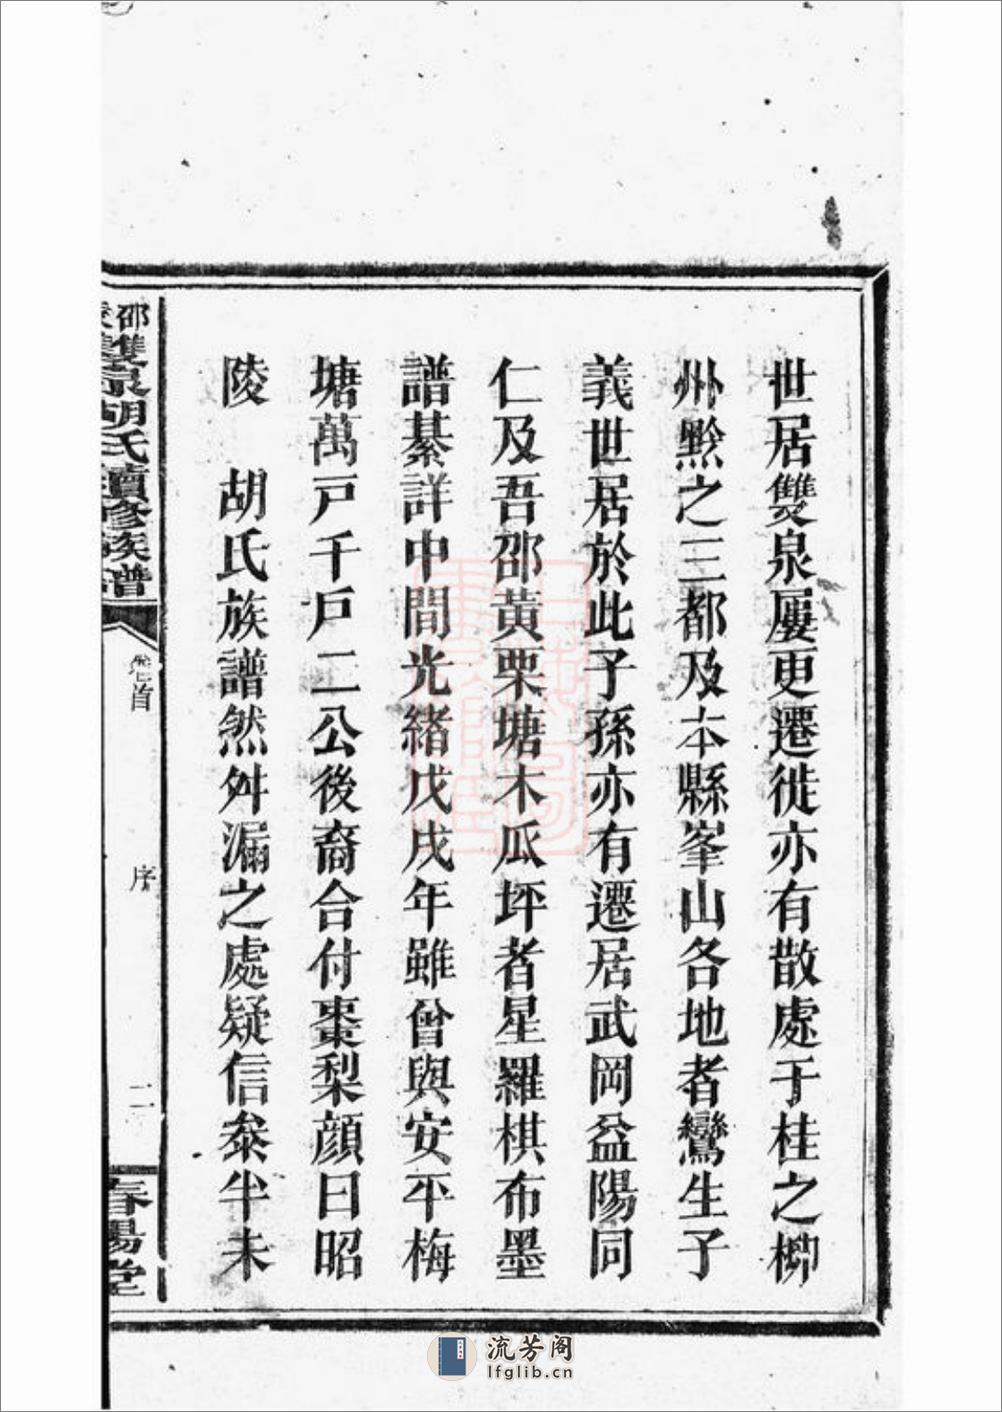 世居雙泉屢更遷徙亦有散處于桂之柳
州黔之三都及本縣峯山各地者鸞生子
義世居於此子孫亦有遷居武岡益陽同
仁及吾邵黃栗塘木瓜坪者星羅棋布墨
譜綦詳中間光緒戊戌年雖曾與安平梅
塘萬戸千戸二公後裔合付棗梨顔曰昭
陵　胡氏族譜然舛漏之處疑信叅半未
邵雙泉胡氏續修族譜
卷首
序
二
春陽堂
流芳阁
lfglib.cn